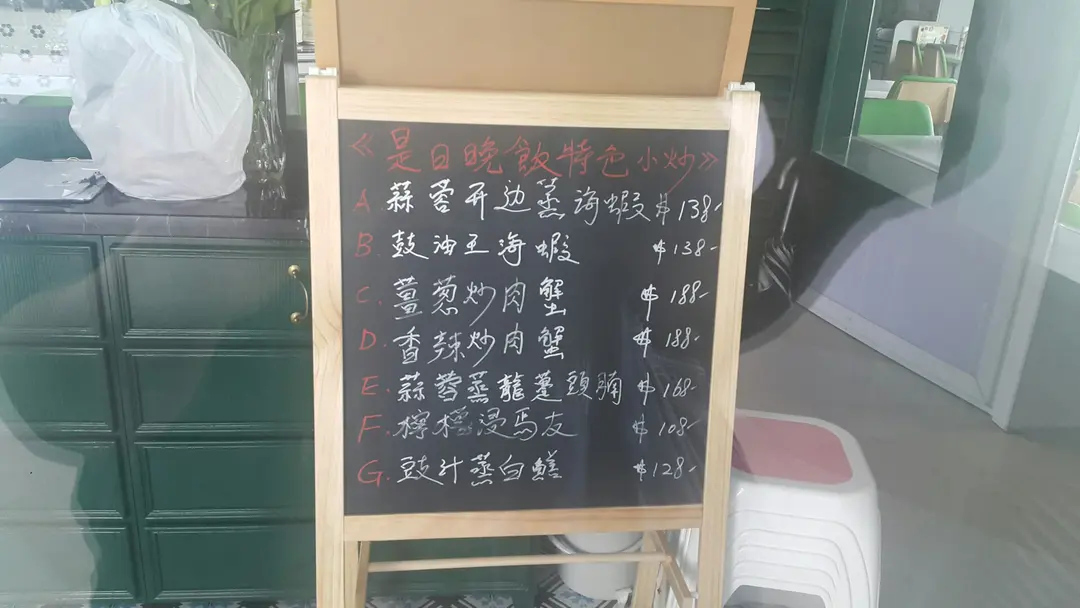 《是日晚飯特色小炒》
A. 蒜蓉开边蒸海蝦 $138-
B. 鼓油王海蝦 $138-
C. 薑葱炒肉蟹 $188-
D. 香辣炒肉蟹 $188-
E. 蒜蓉蒸龍躉頭腩 $168-
F. 檸檬浸馬友 $108-
G. 豉汁蒸白鱔 $128-